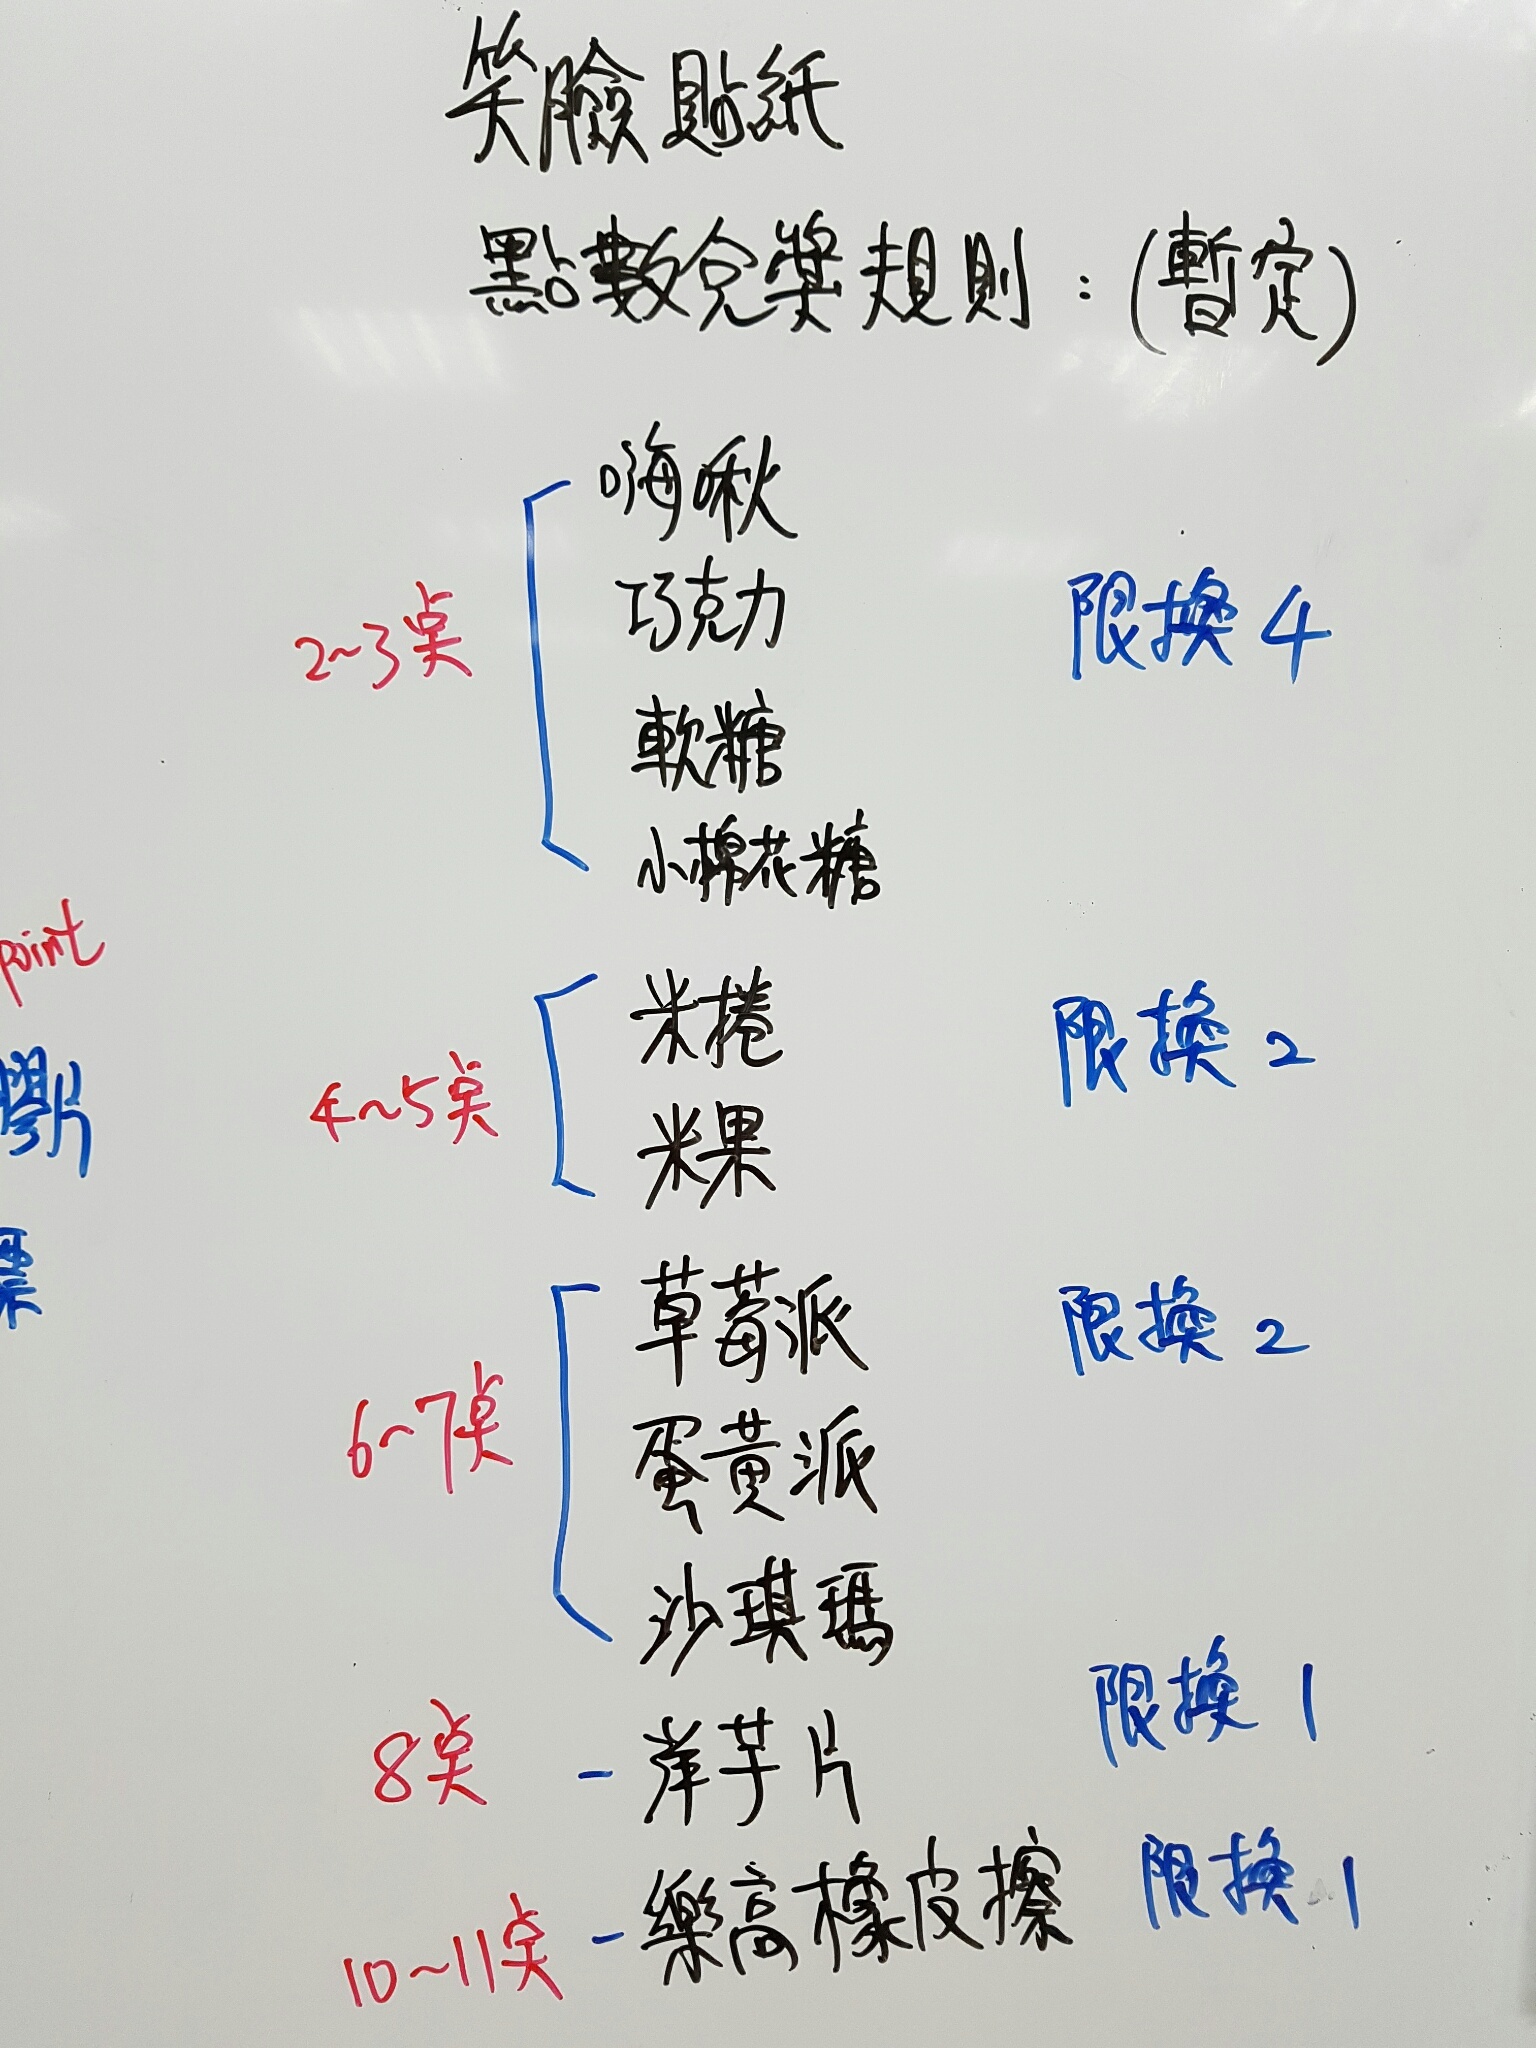 笑臉貼紙
點數兌獎規則：(暫定)
嗨啾
巧克力
2~3点 限換 4
軟糖
小棉花糖
point
米捲
4~5点 限換 2
米果
草莓派 限換 2
6~7点 蛋黃派
沙琪瑪
8点 - 洋芋片 限換 1
10~11点 - 樂高橡皮擦 限換 1